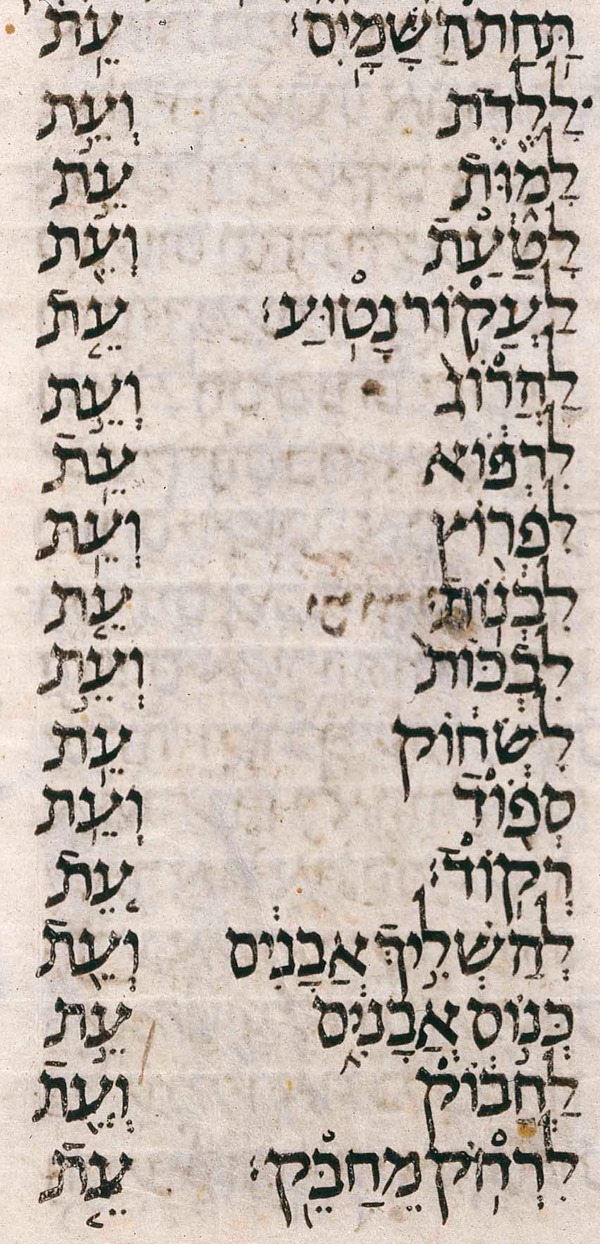 תַּחַת הַשָּׁמָיִם׃ עֵת
לָלֶדֶת וְעֵת
לָמוּת עֵת
לָטַעַת וְעֵת
לַעֲקוֹר נָטוּעַ׃ עֵת
לַהֲרוֹג וְעֵת
לִרְפּוֹא עֵת
לִפְרוֹץ וְעֵת
לִבְנוֹת׃ עֵת
לִבְכּוֹת וְעֵת
לִשְׂחוֹק עֵת
סְפוֹד וְעֵת
רְקוֹד׃ עֵת
לְהַשְׁלִיךְ אֲבָנִים וְעֵת
כְּנוֹס אֲבָנִים עֵת
לַחֲבוֹק וְעֵת
לִרְחֹק מֵחַבֵּק׃ עֵת